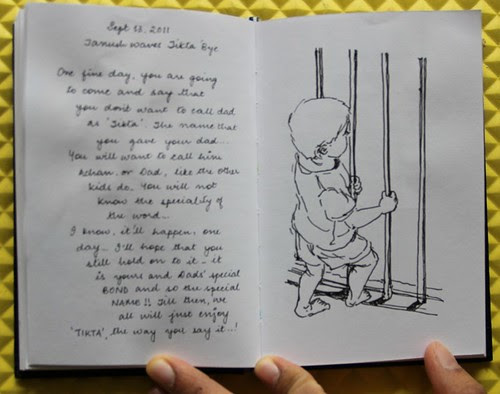 Sept 13, 2011
Tanush waves Tikta 'Bye
One fine day, you are going
to come and say that
you don't want to call dad
as 'Tikta'. The name that
you gave your dad...
You will want to call him
Achan or Dad, like the other
kids do. You will not
know the speciality of
the word...
I know, it'll happen, one
day... I'll hope that you
still hold on to it - it
is yours and Dads' special
BOND and so the special
NAME!! Till then, we
all will just enjoy
'TIKTA', the way you say it...!